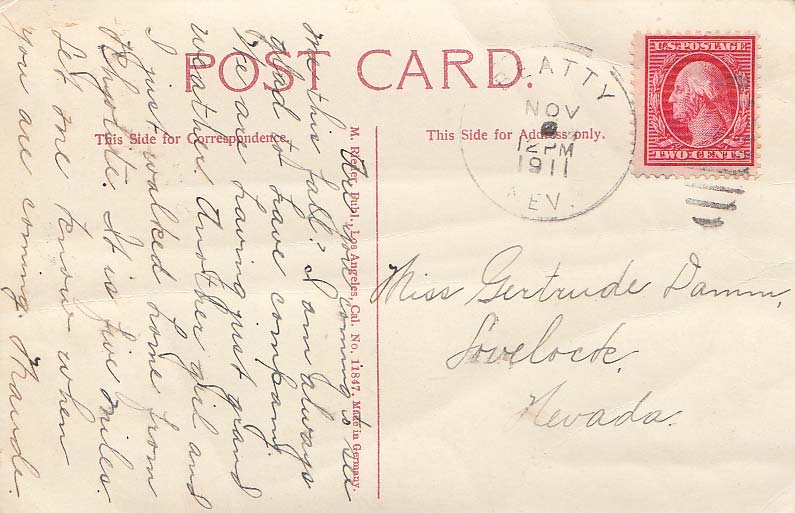 POST CARD.
This Side for Correspondence.
This Side for Address only.
U.S. POSTAGE
TWO CENTS
BEATTY
NOV
12 PM
1911
NEV.
M. Rieder, Publ., Los Angeles, Cal. No. 11847, Made in Germany.
Are you coming to see
me this fall? I am always
glad to have company.
We are having just grand
weather. Another girl and
I just walked home from
Rhyolite. It is five miles.
Let me know when
you are coming. Maude.
Miss Gertrude Damm,
Lovelock,
Nevada.